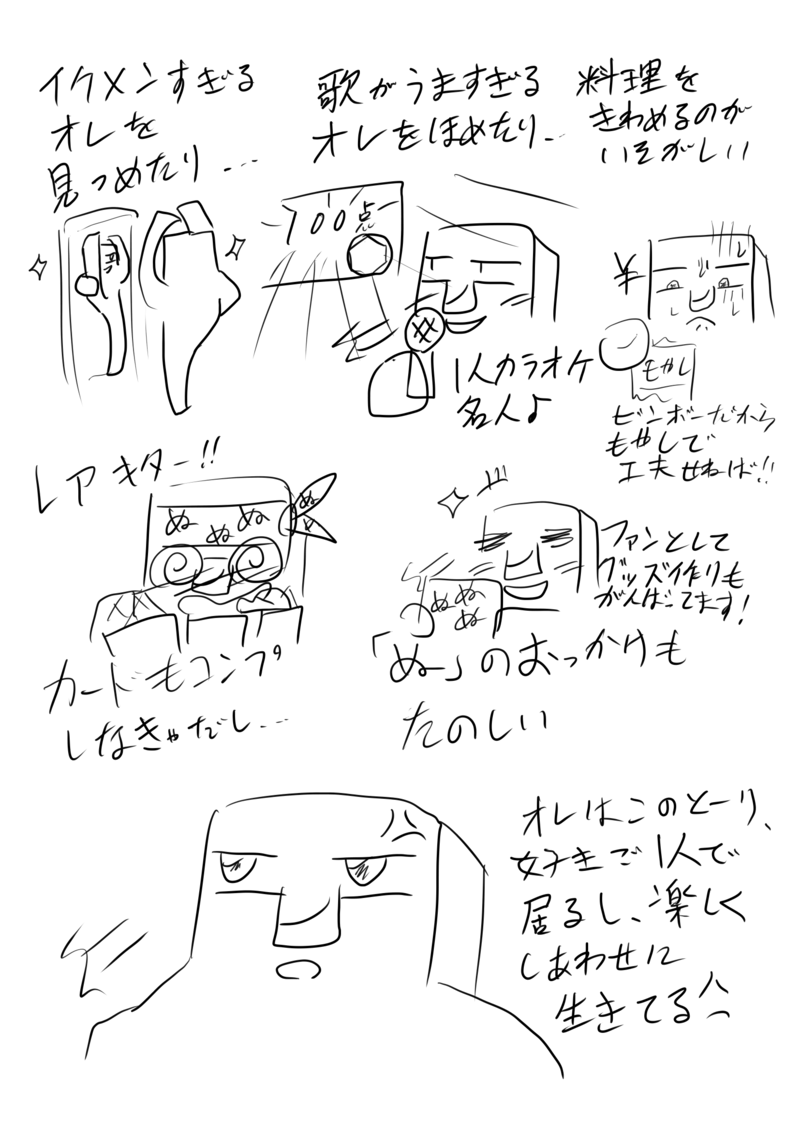 イケメンすぎる
オレを
見つめたり…
歌がうますぎる
オレをほめたり…
料理を
きわめるのが
いそがしい
100点
1人カラオケ
名人♪
¥
もやし
ビンボーだから
もやしで
工夫せねば!!
レアキター!!
ぬ ぬ ぬ
ぬ
カードもコンプ
しなきゃだし…
ファンとして
グッズ作りも
がんばってます!
ぬ ぬ
ぬ
「ぬ」のおっかけも
たのしい
オレはこのとーり、
好きで1人で
居るし、楽しく
しあわせに
生きてる